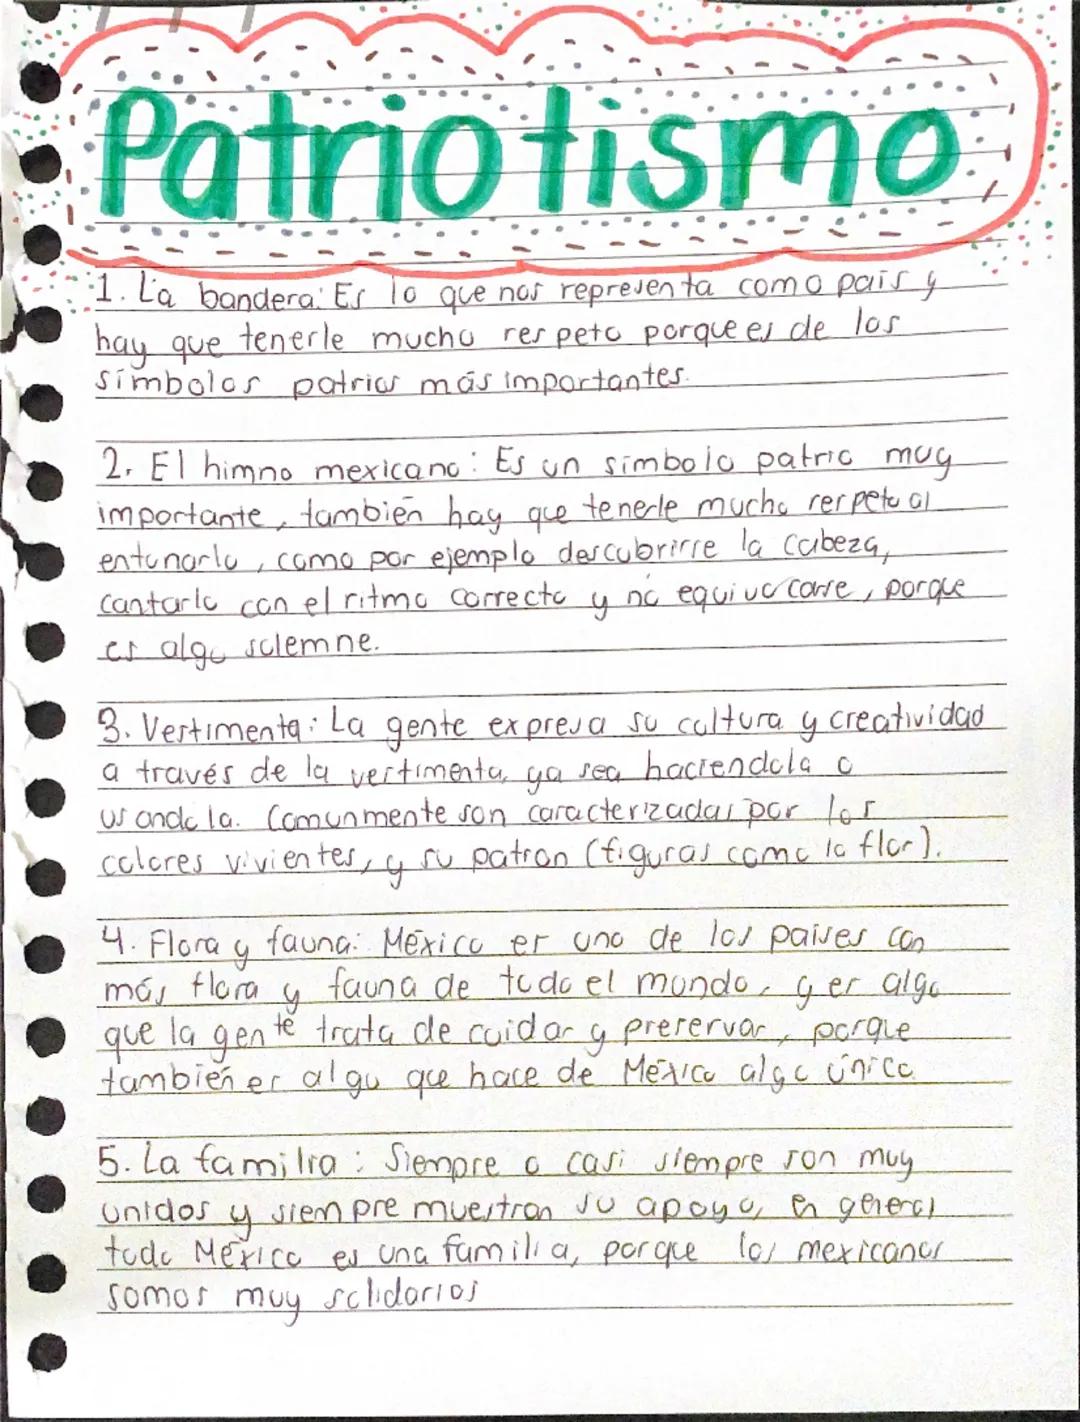 Patriotismo
1. La bandera: Es lo que nos representa como país y
hay que tenerle mucho respeto porque es de los
símbolos patrios más importantes.
2. El himno mexicano: Es un símbolo patrio muy
importante, también hay que tenerle mucho respeto al
entonarlo, como por ejemplo descubrirse la cabeza,
cantarlo con el ritmo correcto y no equivocarse, porque
es algo solemne.
3. Vestimenta: La gente expresa su cultura y creatividad
a través de la vestimenta, ya sea haciendola o
usandola. Comunmente son caracterizadas por los
colores vivientes, y su patron (figuras como la flor).
4. Flora y fauna: México es uno de los paises con
más flora y fauna de todo el mundo, y es algo
que la gente trata de cuidar y preservar, porque
también es algo que hace de México algo único.
5. La familia: Siempre o casi siempre son muy
unidos y siempre muestran su apoyo, en general
todo México es una familia, porque los mexicanos
somos muy solidarios